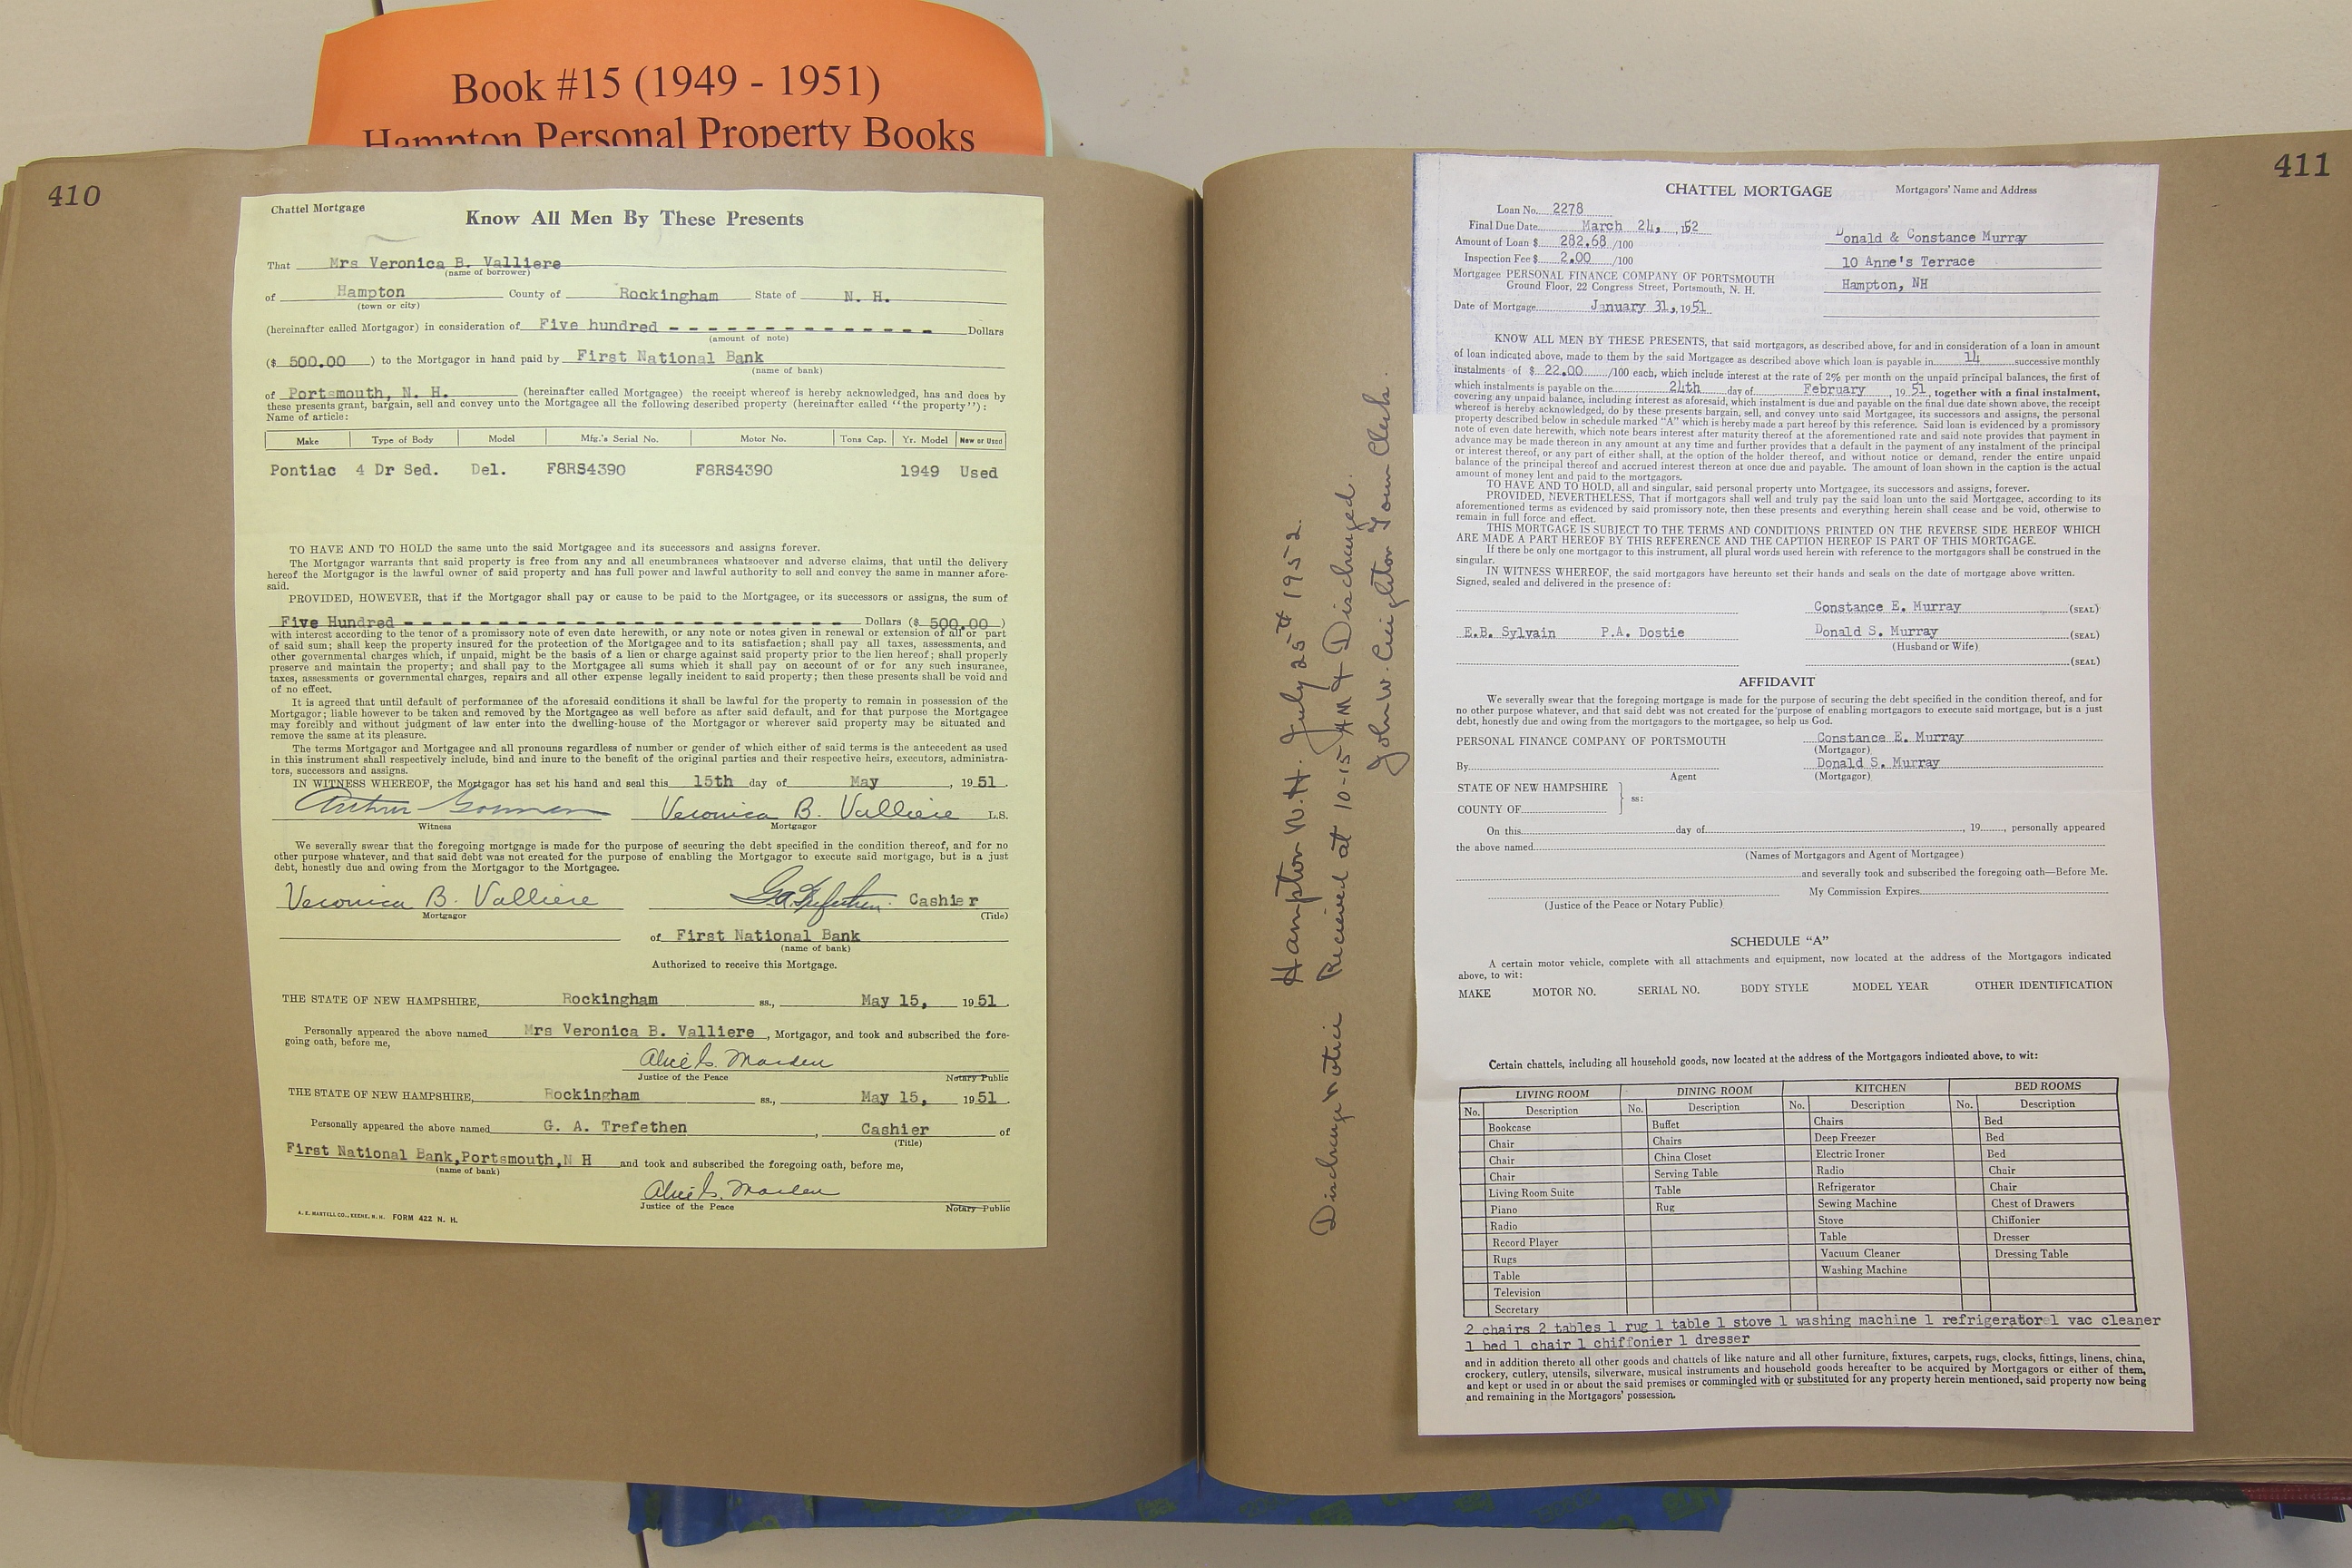 Book #15 (1949 - 1951)
Hampton Personal Property Books
410
Chattel Mortgage
Know All Men By These Presents
That Mrs Veronica B. Valliere
(name of borrower)
of Hampton County of Rockingham State of N. H.
(town or city)
(hereinafter called Mortgagor) in consideration of Five hundred - - - - - - - - - - - - - - Dollars
(amount of note)
($ 500.00 ) to the Mortgagor in hand paid by First National Bank
(name of bank)
of Portsmouth, N. H. (hereinafter called Mortgagee) the receipt whereof is hereby acknowledged, has and does by
these presents grant, bargain, sell and convey unto the Mortgagee all the following described property (hereinafter called "the property"):
Name of article:
Make Type of Body Model Mfg.'s Serial No. Motor No. Tons Cap. Yr. Model New or Used
Pontiac 4 Dr Sed. Del. F8RS4390 F8RS4390 1949 Used
TO HAVE AND TO HOLD the same unto the said Mortgagee and its successors and assigns forever.
The Mortgagor warrants that said property is free from any and all encumbrances whatsoever and adverse claims, that until the delivery
hereof the Mortgagor is the lawful owner of said property and has full power and lawful authority to sell and convey the same in manner afore-
said.
PROVIDED, HOWEVER, that if the Mortgagor shall pay or cause to be paid to the Mortgagee, or its successors or assigns, the sum of
Five Hundred - - - - - - - - - - - - - - - - - - - - - - Dollars ($ 500.00 )
with interest according to the tenor of a promissory note of even date herewith, or any note or notes given in renewal or extension of all or part
of said sum; shall keep the property insured for the protection of the Mortgagee and to its satisfaction; shall pay all taxes, assessments, and
other governmental charges which, if unpaid, might be the basis of a lien or charge against said property prior to the lien hereof; shall properly
preserve and maintain the property; and shall pay to the Mortgagee all sums which it shall pay on account of or for any such insurance,
taxes, assessments or governmental charges, repairs and all other expense legally incident to said property; then these presents shall be void and
of no effect.
It is agreed that until default of performance of the aforesaid conditions it shall be lawful for the property to remain in possession of the
Mortgagor; liable however to be taken and removed by the Mortgagee as well before as after said default, and for that purpose the Mortgagee
may forcibly and without judgment of law enter into the dwelling-house of the Mortgagor or wherever said property may be situated and
remove the same at its pleasure.
The terms Mortgagor and Mortgagee and all pronouns regardless of number or gender of which either of said terms is the antecedent as used
in this instrument shall respectively include, bind and inure to the benefit of the original parties and their respective heirs, executors, administra-
tors, successors and assigns.
IN WITNESS WHEREOF, the Mortgagor has set his hand and seal this 15th day of May , 19 51 .
Arthur Veronica B. Valliere L.S.
Witness Mortgagor
We severally swear that the foregoing mortgage is made for the purpose of securing the debt specified in the condition thereof, and for no
other purpose whatever, and that said debt was not created for the purpose of enabling the Mortgagor to execute said mortgage, but is a just
debt, honestly due and owing from the Mortgagor to the Mortgagee.
Veronica B. Valliere G.A. Trefethen. Cashier
Mortgagor (Title)
of First National Bank
(name of bank)
Authorized to receive this Mortgage.
THE STATE OF NEW HAMPSHIRE, Rockingham ss., May 15, 19 51 .
Personally appeared the above named Mrs Veronica B. Valliere , Mortgagor, and took and subscribed the fore-
going oath, before me,
Alice G. Marden
Justice of the Peace Notary Public
THE STATE OF NEW HAMPSHIRE, Rockingham ss., May 15, 19 51 .
Personally appeared the above named G. A. Trefethen , Cashier of
(Title)
First National Bank,Portsmouth,N H and took and subscribed the foregoing oath, before me,
(name of bank)
Alice G. Marden
Justice of the Peace Notary Public
A. E. MARTELL CO., KEENE, N. H. FORM 422 N. H.
Hampton N.H. July 25th 1952.
Discharge Notice Recieved at 10-15 AM & Discharged.
John W. Creighton Town Clerk.
411
CHATTEL MORTGAGE Mortgagors' Name and Address
Loan No. 2278
Final Due Date March 24, , 152
Amount of Loan $ 282.68 /100
Inspection Fee $ 2.00 /100
Mortgagee PERSONAL FINANCE COMPANY OF PORTSMOUTH
Ground Floor, 22 Congress Street, Portsmouth, N. H.
Date of Mortgage January 31, 1951
Donald & Constance Murray
10 Anne's Terrace
Hampton, NH
KNOW ALL MEN BY THESE PRESENTS, that said mortgagors, as described above, for and in consideration of a loan in amount
of loan indicated above, made to them by the said Mortgagee as described above which loan is payable in 14 successive monthly
instalments of $ 22.00 /100 each, which include interest at the rate of 2% per month on the unpaid principal balances, the first of
which instalments is payable on the 24th day of February , 19 51, together with a final instalment,
covering any unpaid balance, including interest as aforesaid, which instalment is due and payable on the final due date shown above, the receipt
whereof is hereby acknowledged, do by these presents bargain, sell, and convey unto said Mortgagee, its successors and assigns, the personal
property described below in schedule marked "A" which is hereby made a part hereof by this reference. Said loan is evidenced by a promissory
note of even date herewith, which note bears interest after maturity thereof at the aforementioned rate and said note provides that payment in
advance may be made thereon in any amount at any time and further provides that a default in the payment of any instalment of the principal
or interest thereof, or any part of either shall, at the option of the holder thereof, and without notice or demand, render the entire unpaid
balance of the principal thereof and accrued interest thereon at once due and payable. The amount of loan shown in the caption is the actual
amount of money lent and paid to the mortgagors.
TO HAVE AND TO HOLD, all and singular, said personal property unto Mortgagee, its successors and assigns, forever.
PROVIDED, NEVERTHELESS, That if mortgagors shall well and truly pay the said loan unto the said Mortgagee, according to its
aforementioned terms as evidenced by said promissory note, then these presents and everything herein shall cease and be void, otherwise to
remain in full force and effect.
THIS MORTGAGE IS SUBJECT TO THE TERMS AND CONDITIONS PRINTED ON THE REVERSE SIDE HEREOF WHICH
ARE MADE A PART HEREOF BY THIS REFERENCE AND THE CAPTION HEREOF IS PART OF THIS MORTGAGE.
If there be only one mortgagor to this instrument, all plural words used herein with reference to the mortgagors shall be construed in the
singular.
IN WITNESS WHEREOF, the said mortgagors have hereunto set their hands and seals on the date of mortgage above written.
Signed, sealed and delivered in the presence of:
Constance E. Murray (SEAL)
E.B. Sylvain P.A. Dostie Donald S. Murray (SEAL)
(Husband or Wife)
(SEAL)
AFFIDAVIT
We severally swear that the foregoing mortgage is made for the purpose of securing the debt specified in the condition thereof, and for
no other purpose whatever, and that said debt was not created for the purpose of enabling mortgagors to execute said mortgage, but is a just
debt, honestly due and owing from the mortgagors to the mortgagee, so help us God.
PERSONAL FINANCE COMPANY OF PORTSMOUTH Constance E. Murray
(Mortgagor)
By Donald S. Murray
Agent (Mortgagor)
STATE OF NEW HAMPSHIRE
ss:
COUNTY OF
On this day of , 19 , personally appeared
the above named
(Names of Mortgagors and Agent of Mortgagee)
and severally took and subscribed the foregoing oath—Before Me.
My Commission Expires
(Justice of the Peace or Notary Public)
SCHEDULE "A"
A certain motor vehicle, complete with all attachments and equipment, now located at the address of the Mortgagors indicated
above, to wit:
MAKE MOTOR NO. SERIAL NO. BODY STYLE MODEL YEAR OTHER IDENTIFICATION
Certain chattels, including all household goods, now located at the address of the Mortgagors indicated above, to wit:
LIVING ROOM DINING ROOM KITCHEN BED ROOMS
No. Description No. Description No. Description No. Description
Bookcase Buffet Chairs Bed
Chair Chairs Deep Freezer Bed
Chair China Closet Electric Ironer Bed
Chair Serving Table Radio Chair
Living Room Suite Table Refrigerator Chair
Piano Rug Sewing Machine Chest of Drawers
Radio Stove Chiffonier
Record Player Table Dresser
Rugs Vacuum Cleaner Dressing Table
Table Washing Machine
Television
Secretary
2 chairs 2 tables 1 rug 1 table 1 stove 1 washing machine 1 refrigerator 1 vac cleaner
1 bed 1 chair 1 chiffonier 1 dresser
and in addition thereto all other goods and chattels of like nature and all other furniture, fixtures, carpets, rugs, clocks, fittings, linens, china,
crockery, cutlery, utensils, silverware, musical instruments and household goods hereafter to be acquired by Mortgagors or either of them,
and kept or used in or about the said premises or commingled with or substituted for any property herein mentioned, said property now being
and remaining in the Mortgagors' possession.